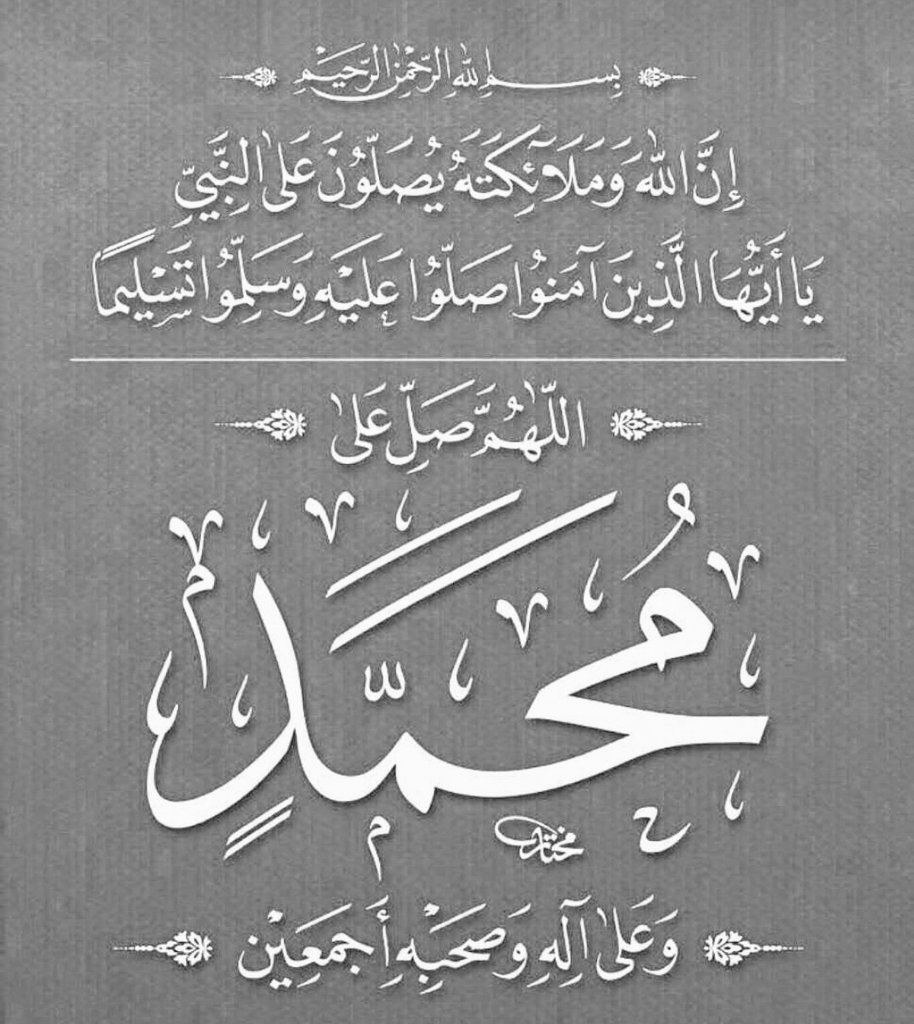 بِسْمِ اللهِ الرَّحْمٰنِ الرَّحِيْمِ
إِنَّ اللهَ وَمَلَآئِكَتَهُ يُصَلُّوْنَ عَلَى النَّبِيِّ
يَا أَيُّهَا الَّذِينَ آمَنُوْا صَلُّوْا عَلَيْهِ وَسَلِّمُوْا تَسْلِيمًا
اللّٰهُمَّ صَلِّ عَلٰى
مُحَمَّدٍ
مختار
وَعَلٰى آلِهِ وَصَحْبِهِ أَجْمَعِيْن